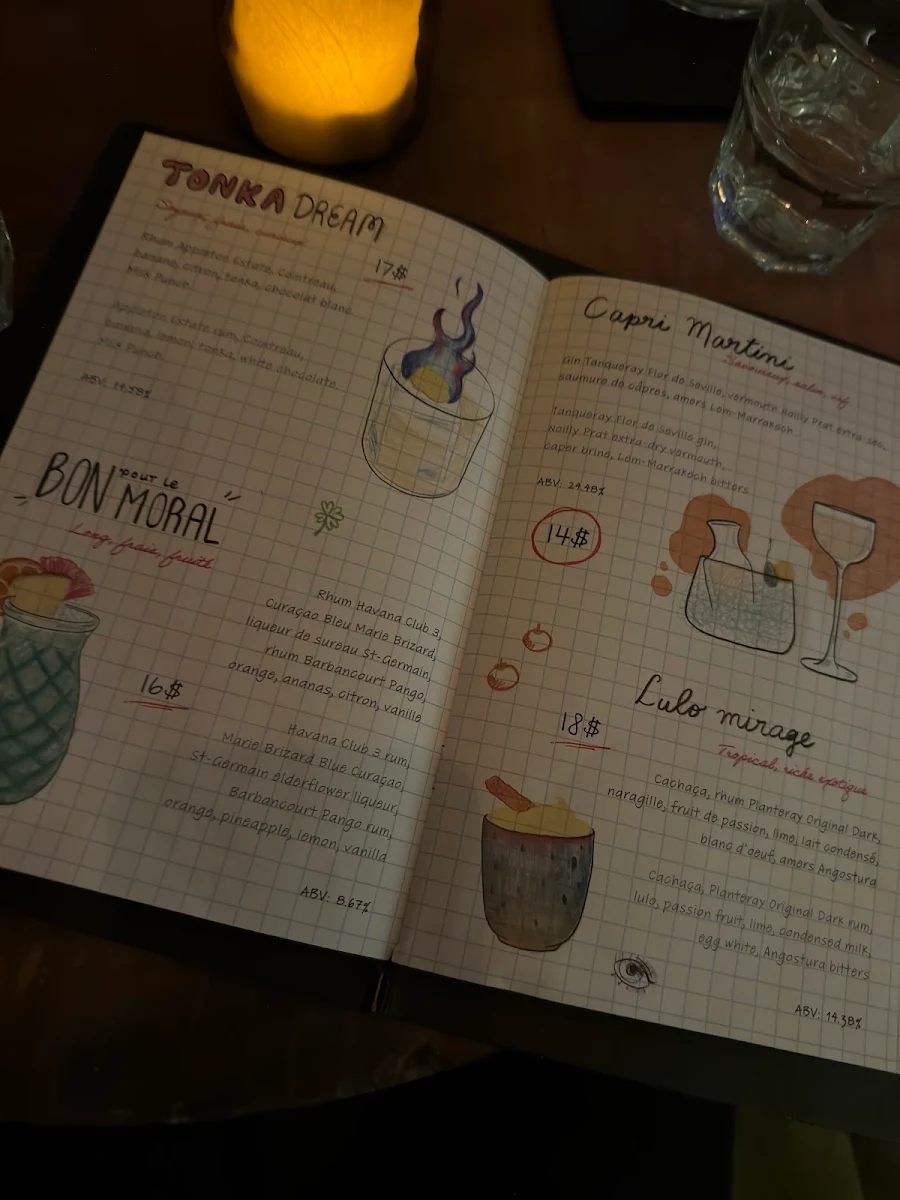 TONKA DREAM
17$
Rhum Appleton Estate, Cointreau,
banane, citron, tonka, chocolat blanc
Milk Punch
Appleton Estate rum, Cointreau,
banana, lemon, tonka, white chocolate
Milk Punch
BON pour le MORAL
Long, frais, fruité
Rhum Havana Club 3,
Curaçao Bleu Marie Brizard,
liqueur de sureau St-Germain,
rhum Barbancourt Pango,
orange, ananas, citron, vanille
16$
Havana Club 3 rum,
Marie Brizard Blue Curaçao,
St-Germain elderflower liqueur,
Barbancourt Pango rum,
orange, pineapple, lemon, vanilla
ABV: 8.67%
Capri Martini
Savoureux, salin, vif
Gin Tanqueray Flor de Seville, vermouth Noilly Prat extra-sec,
saumure de câpres, amers Lom-Marrakech
Tanqueray Flor de Seville gin,
Noilly Prat extra-dry vermouth,
caper brine, Lom-Marrakech bitters
ABV: 24.48%
14$
Lulo mirage
Tropical, riche exotique
18$
Cachaça, rhum Planteray Original Dark,
naragille, fruit de passion, lime, lait condensé,
blanc d'oeuf, amers Angostura
Cachaça, Planteray Original Dark rum,
lulo, passion fruit, lime, condensed milk,
egg white, Angostura bitters
ABV: 14.38%